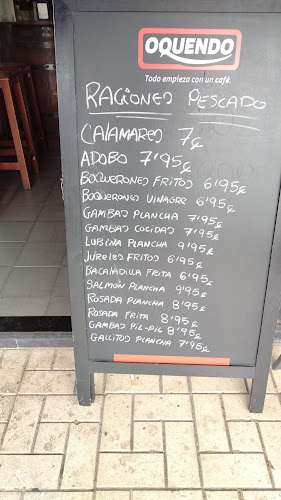 OQUENDO
Todo empieza con un café
RACIONES PESCADO
CALAMARES 7€
ADOBO 7'95€
BOQUERONES FRITOS 6'95€
BOQUERONES VINAGRE 6'95€
GAMBAS PLANCHA 7'95€
GAMBAS COCIDAS 7'95€
LUBINA PLANCHA 9'95€
JURELES FRITOS 6'95€
BACALADILLA FRITA 6'95€
SALMÓN PLANCHA 9'95€
ROSADA PLANCHA 8'95€
ROSADA FRITA 8'95€
GAMBAS PIL-PIL 8'95€
GALLITOS PLANCHA 7'95€